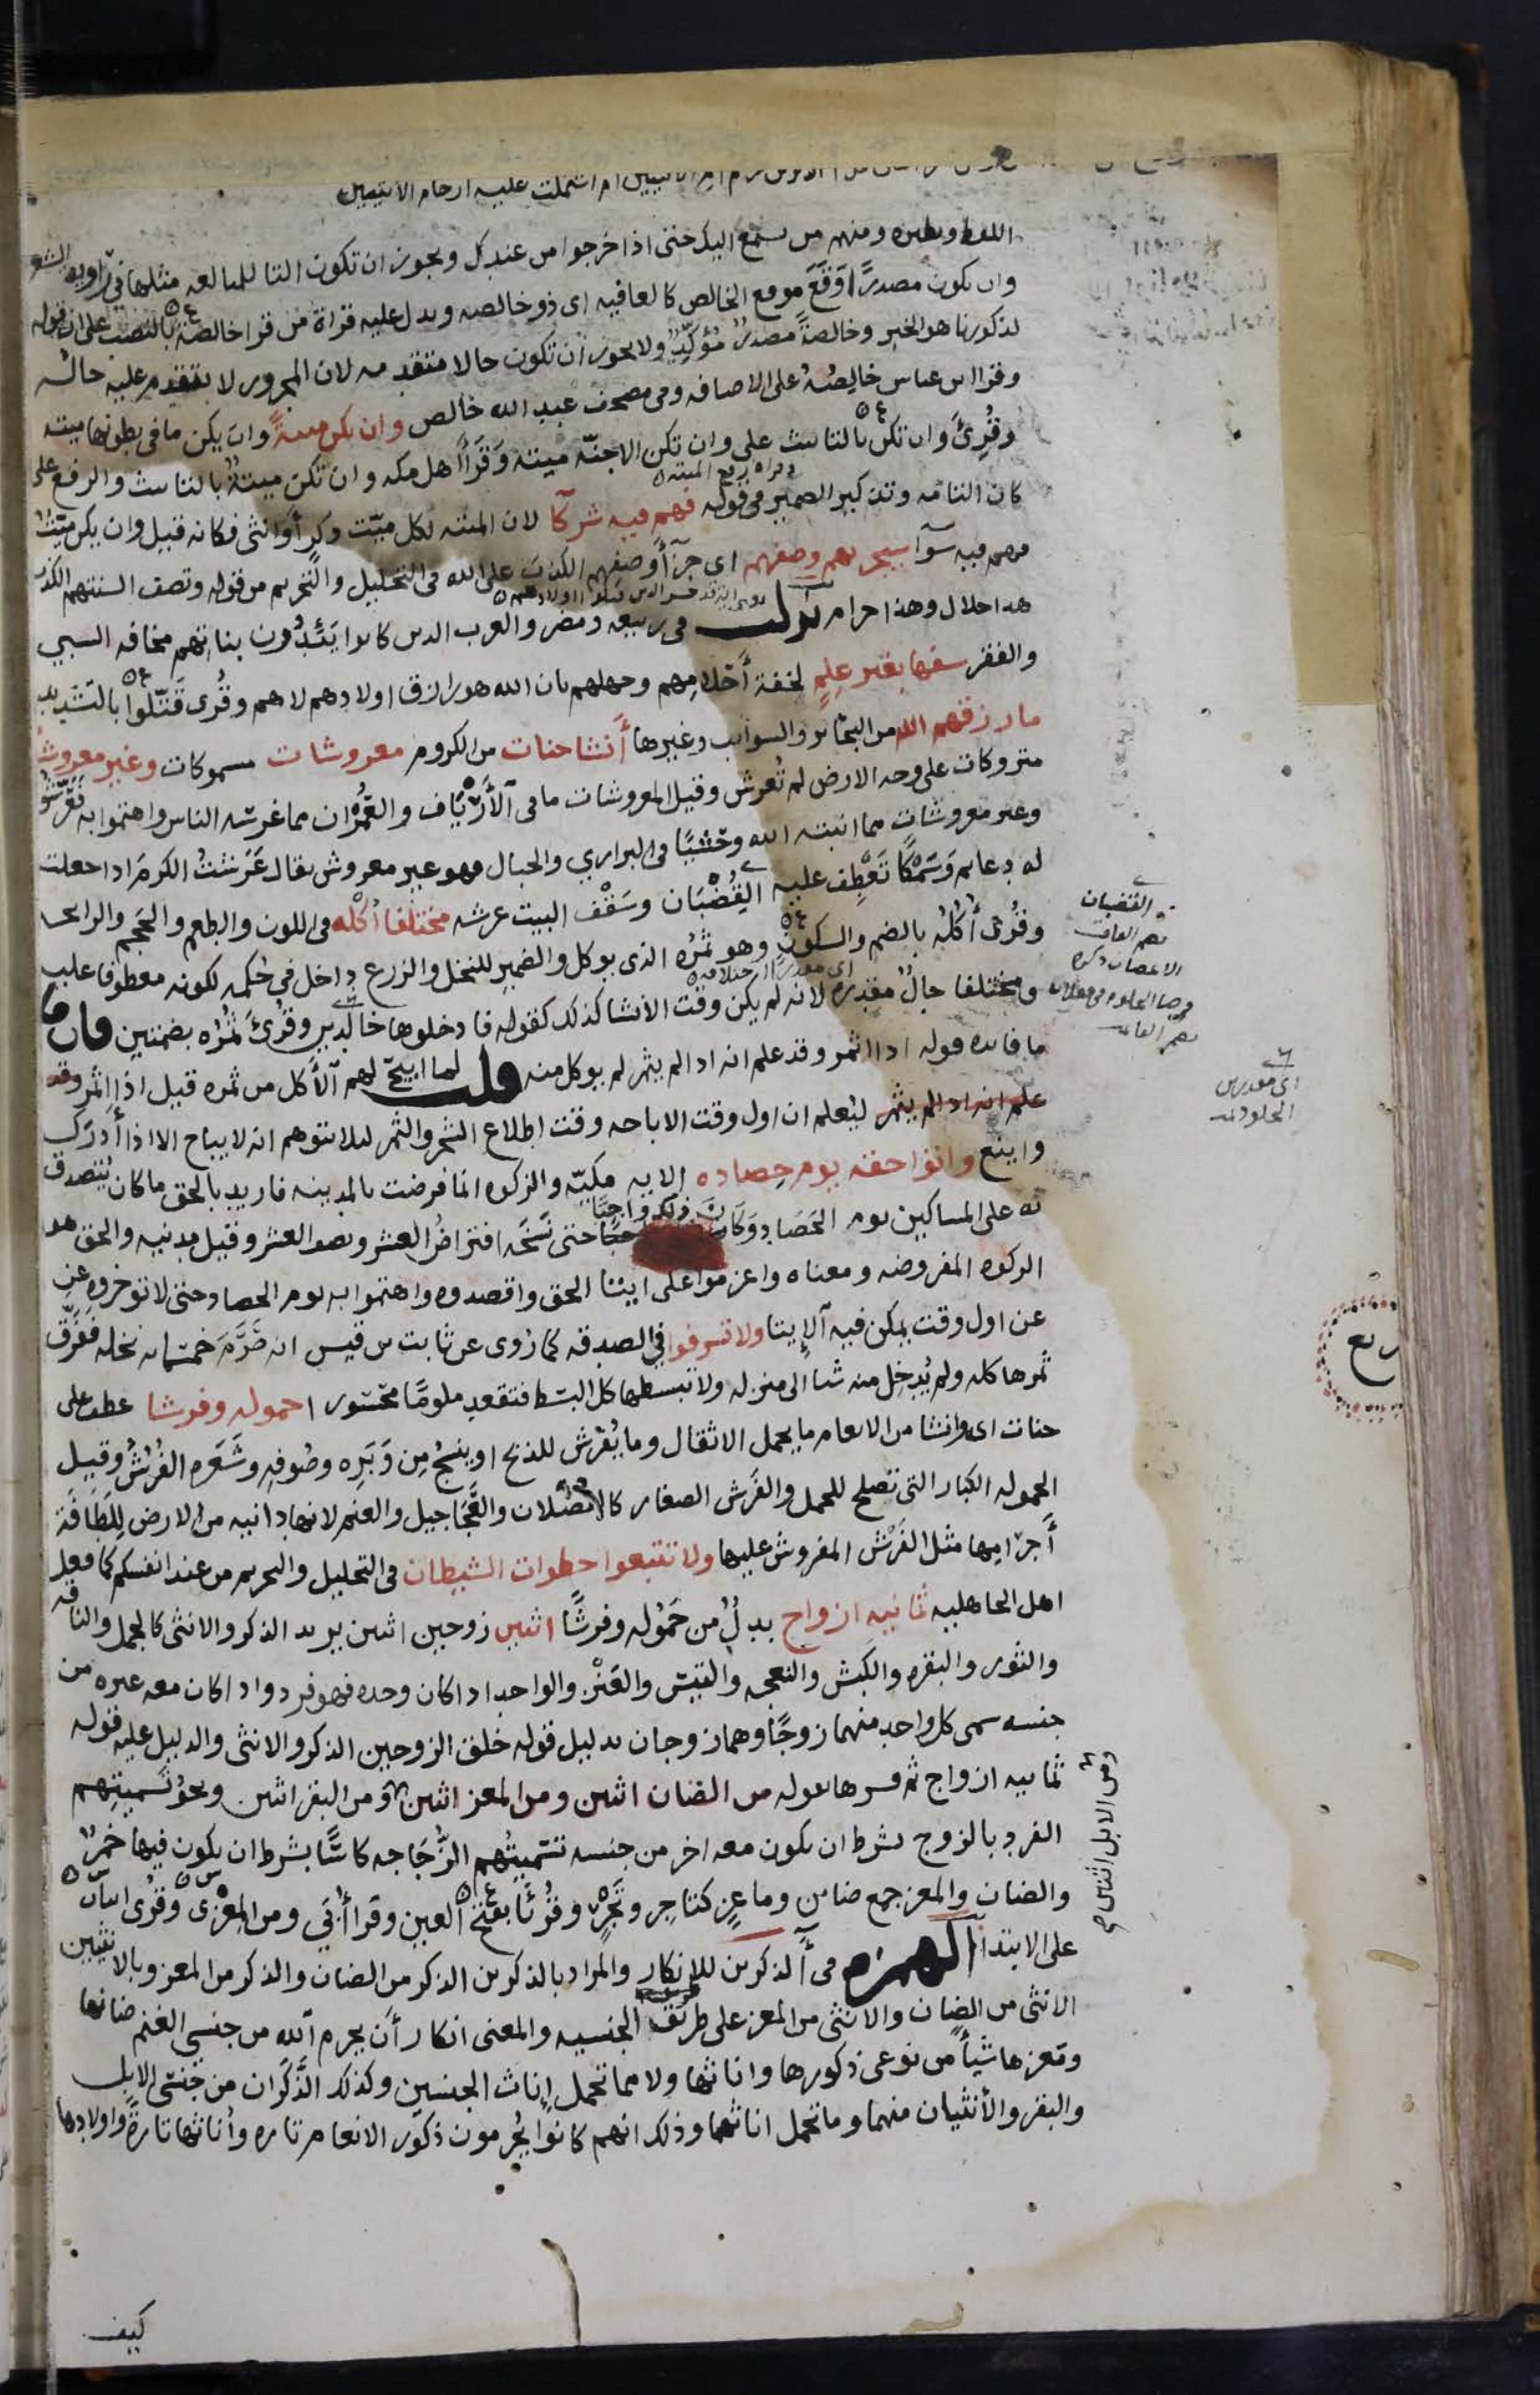 ام اشتملت عليه ارحام الانثيين
اللفظ ونظيره ومنهم من يستمع اليك حتى اذا خرجوا من عندك ويجوز ان تكون التا للمبالغه مثلها في راويه الشعر
وان يكون مصدرًا وَقَعَ موقع الخالص كالعافيه اى ذو خالصه ويدل عليه قراة من قرا خالصةً بالنصب على ان قوله
لذكورنا هو الخبر وخالصةً مصدرٌ مُؤكِّدٌ ولا يجوز ان تكون حالا متقدمه لان المجرور لا يتقدم عليه حاله
وقرا ابن عباس خالِصُهُ على الاضافه وفى مصحف عبد الله خالص وان يكن ميتةً وان يكن ما فى بطونها ميته
وقُرِئَ وان تكن بالتانيث على وان تكن الاجنّه ميته وقَرَأَ اهل مكه وان تكن ميتةٌ بالتانيث والرفع على
كان التامه وتذكير الضمير فى قوله فهم فيه شركآ لان الميته لكل ميّت ذكرٍ أو انثى فكانه قيل وان يكن ميّتٌ
فهم فيه سوآ سيجزيهم وصفهم اى جزآ وصفهم الكذبَ على الله فى التحليل والتحريم من قوله وتصف السنتهم الكذب
هذا حلال وهذا حرام نزلت فى ربيعه ومضر والعرب الذين كانوا يَئِدُون بناتهم مخافه السبي
والفقر سفها بغير علمٍ لخفة أحلامهم وجهلهم بان الله هو رازق اولادهم لا هم وقُرى قَتّلوا بالتشديد
ما رزقهم الله من البحائر والسوآئب وغيرها أنشا جنات من الكروم معروشات مسموكات وغير معروشات
متروكات على وجه الارض لم تُعرش وقيل المعروشات ما فى الأَرْيَاف والعُمْران مما غرسه الناس واهتموا به فَعَرَّشُوا
وغير معروشات مما انبته الله وحْشيًّا فى البراري والجبال فهو غير معروش يقال عَرَشتُ الكرمَ اذا جعلت
له دعايم وَسَمْكًا تَعْطِف عليه القُضْبَان وسَقْف البيت عرشه مختلفا أكله فى اللون والطعم والحَجم والرايحه
وقُرئ أُكْلُه بالضم والسكون وهو ثمرُه الذى يوكل والضمير للنخل والزرع داخل فى حُكمه لكونه معطوفا عليه
ومختلفا حالٌ مقدره لانه لم يكن وقت الانشا كذلك كقوله فادخلوها خالدين وقُرِئ ثُمُرِه بضمتين فان قلت
ما فايده قوله اذا اثمر وقد علم انه اذا لم يثمر لم يوكل منه قلت لما ابيح لهم الأكل من ثمره قيل اذا اثمر وقد
علم انه اذا لم يثمر ليُعلم ان اول وقت الاباحه وقت اطلاع الشجر والثمر لئلا يتوهم انه لا يباح الا اذا أدرَك
واينع واتوا حقه يوم حصاده الايه مكيّه والزكوه انما فرضت بالمدينه فاريد بالحق ما كان يُتصدق
به على المساكين يوم الحَصَاد وَكَانَ ذلك واجبًا حتى نسَخَه افتراضُ العشر ونصف العشر وقيل مدنيه والحق هو
الزكوه المفروضه ومعناه واعزموا على ايتا الحق واقصدوه واهتموا به يوم الحصاد حتى لا توخروه عن
عن اول وقت يمكن فيه الإيتا ولا تسرفوا فى الصدقه كما رُوى عن ثابت بن قيس انه صَرَمَ خمسمايه نخله فَفَرَّق
ثمرها كله ولم يُدخِل منه شيا الى منزله ولا تبسطها كل البسْط فتقعد ملومًا محسورا حموله وفرشا عطف على
جنات اى وانشا من الانعام ما يحمل الاثقال وما يُفْرش للذبح او ينسجُ مِن وَبَرِه وصُوفِه وشَعَرِه الفُرُشُ وقيل
الحموله الكبار التى تصلح للحمل والفَرش الصغار كالفُصْلان والعَجَاجيل والغنم لانها دانيه من الارض للطَافَة
أجرامها مثل الفَرْش المفروش عليها ولا تتبعوا خطوات الشيطان فى التحليل والتحريم من عند انفسكم كما فعل
اهل الجاهليه ثمانيه ازواج بدلٌ من حَمُوله وفرشًا اثنين زوجين اثنين يريد الذكر والانثى كالجمل والناقه
والثور والبقره والكبش والنعجه والتيس والعَنْز والواحد اذا كان وحده فهو فرد واذا كان معه غيره من
جنسه سمى كل واحد منهما زوجًا وهما زوجان بدليل قوله خلق الزوجين الذكر والانثى والدليل عليه قوله
ثمانيه ازواج ثم فسرها بقوله من الضان اثنين ومن المعز اثنين ومن البقر اثنين ونحوُ تَسميتِهم
الفرد بالزوج بشرط ان يكون معه اخر من جنسه تسميتُهم الزُّجَاجه كاسًّا بشرط ان يكون فيها خمرٌ
والضان والمعز جمع ضاين وماعِزٍ كتاجِرٍ وتَجْرٍ وقُرئا بفتح العين وقرا أُبَي ومن المِعْزى وقُرى اثنان
على الابتدا الهمزه فى آلذكرين للإنكار والمراد بالذكرين الذكر من الضان والذكر من المعز وبالانثيين
الانثى من الضان والانثى من المعز على طريق الجنسيه والمعنى انكار أن يحرم الله من جنسى الغنم ضانها
ومَعزها شيأ من نوعى ذكورها واناثها ولا مما تحمل إناث الجنسين وكذلك الذَّكَران من جنسى الابل
والبقر والأنثيان منهما وما تحمل اناثهما وذلك انهم كانوا يُحرمون ذكور الانعام تاره وأُناثها تارةً واولادها
القضبان
اى مقدرين
الخلود
ومن الابل اثنين
ربع
كيف